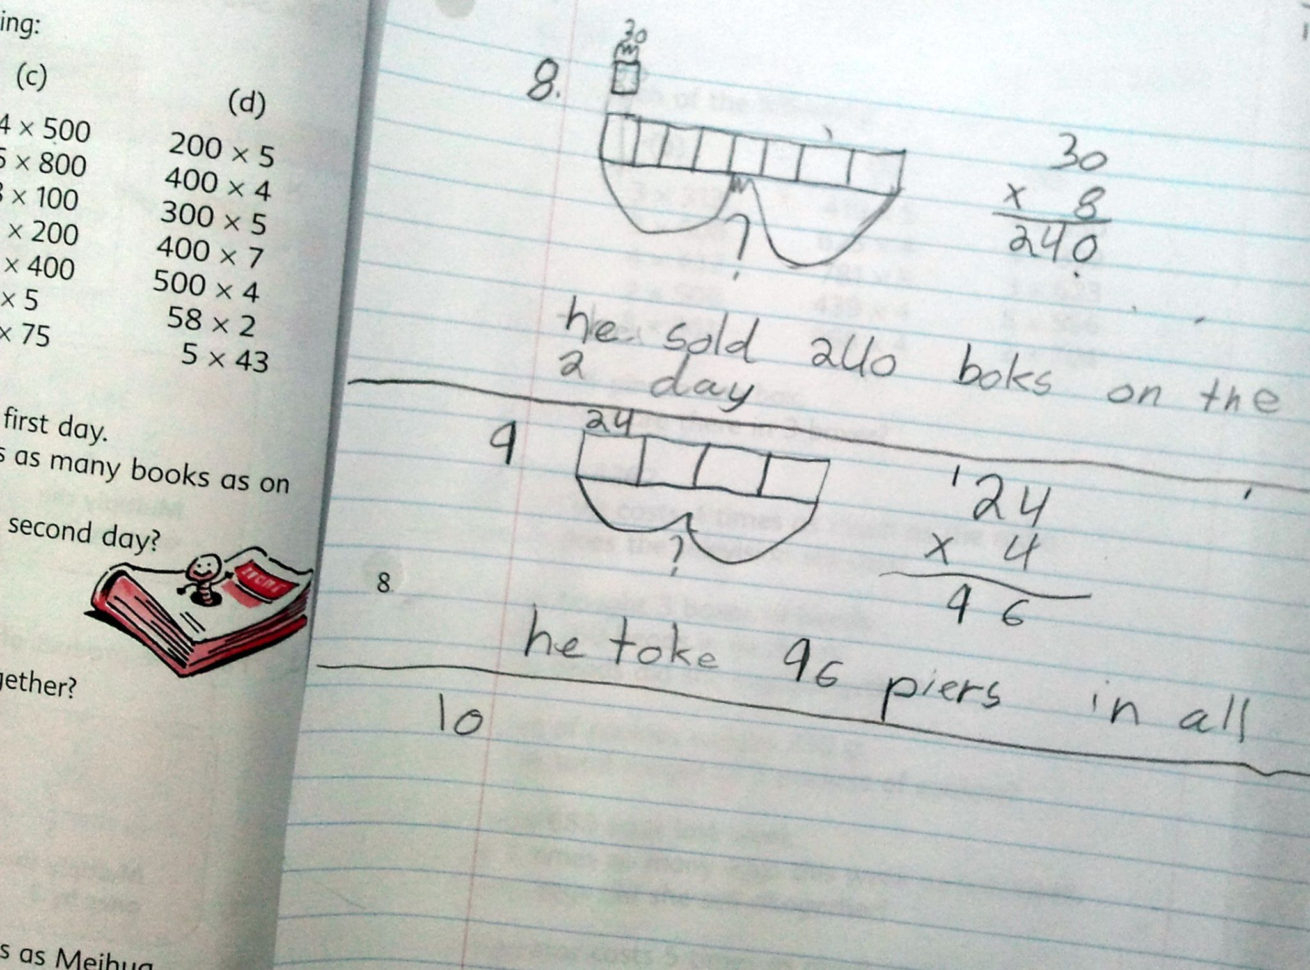 ing:
(c)
(d)
4 × 500
200 × 5
× 800
400 × 4
× 100
300 × 5
× 200
400 × 7
× 400
500 × 4
× 5
58 × 2
× 75
5 × 43
first day.
s as many books as on
second day?
gether?
s as Meihua
30
8.
?
30
x 8
240
he sold 240 boks on the
2 day
9
24
?
1
24
x 4
96
8.
he toke 96 piers in all
10